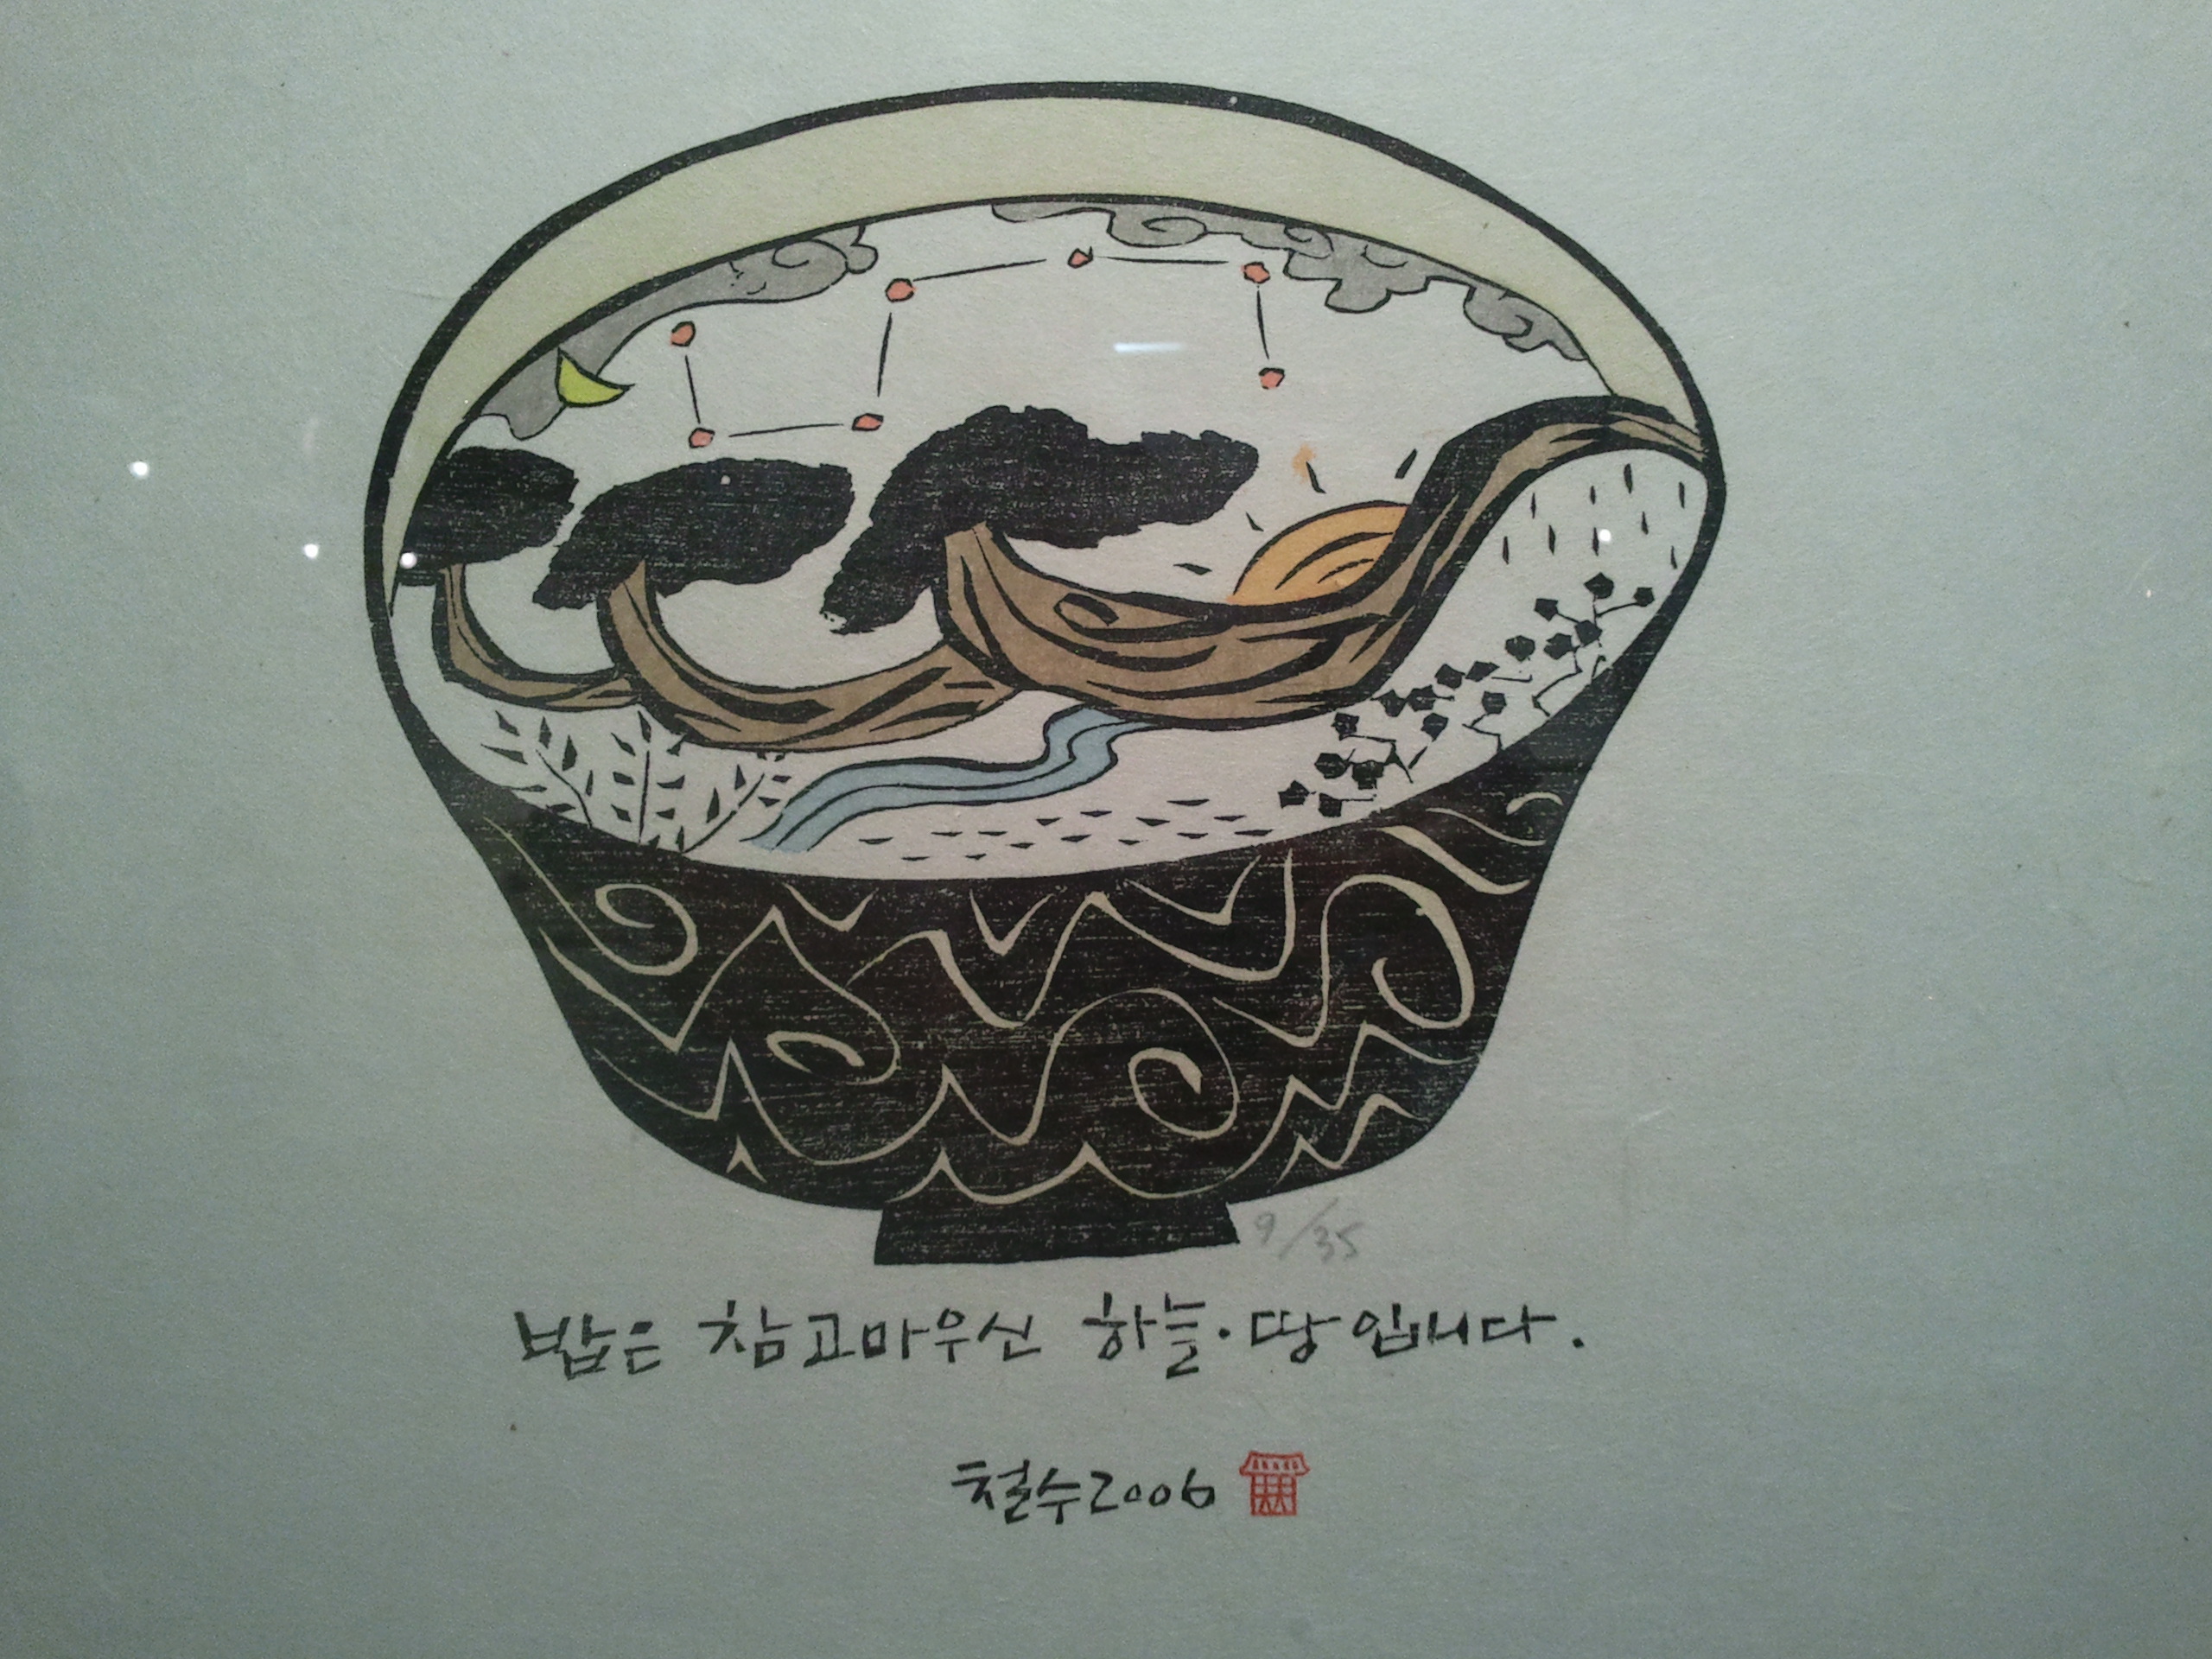 9/35
밥은 참 고마우신 하늘·땅입니다.
철수2006